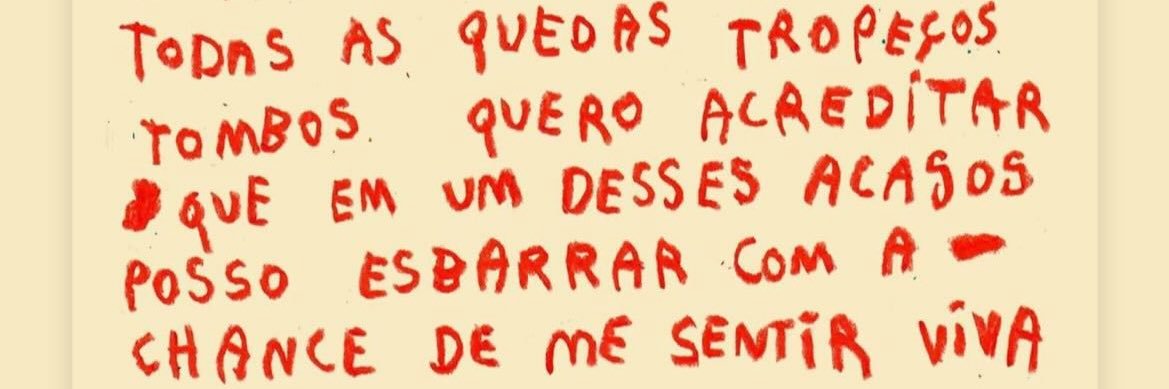 TODAS AS QUEDAS TROPEÇOS
TOMBOS QUERO ACREDITAR
QUE EM UM DESSES ACASOS
POSSO ESBARRAR COM A
CHANCE DE ME SENTIR VIVA